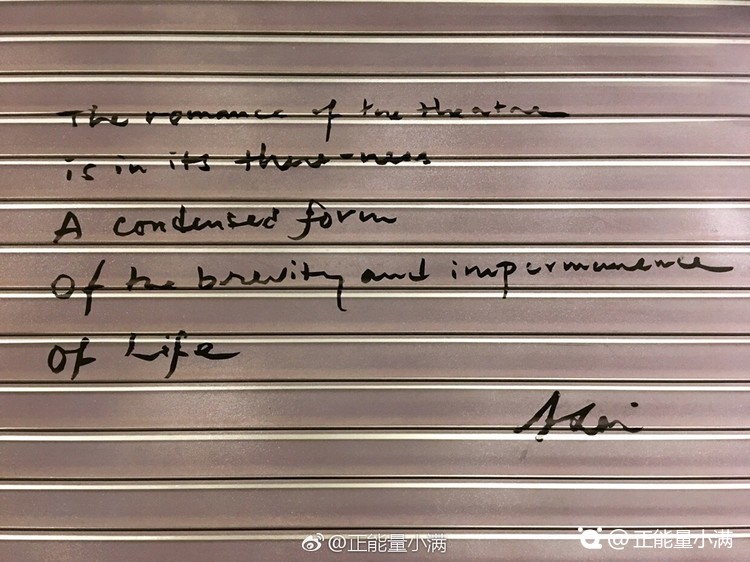 The romance of the theatre
is in its there-ness
A condensed form
Of the brevity and impermanence
Of Life
@正能量小满
@正能量小满